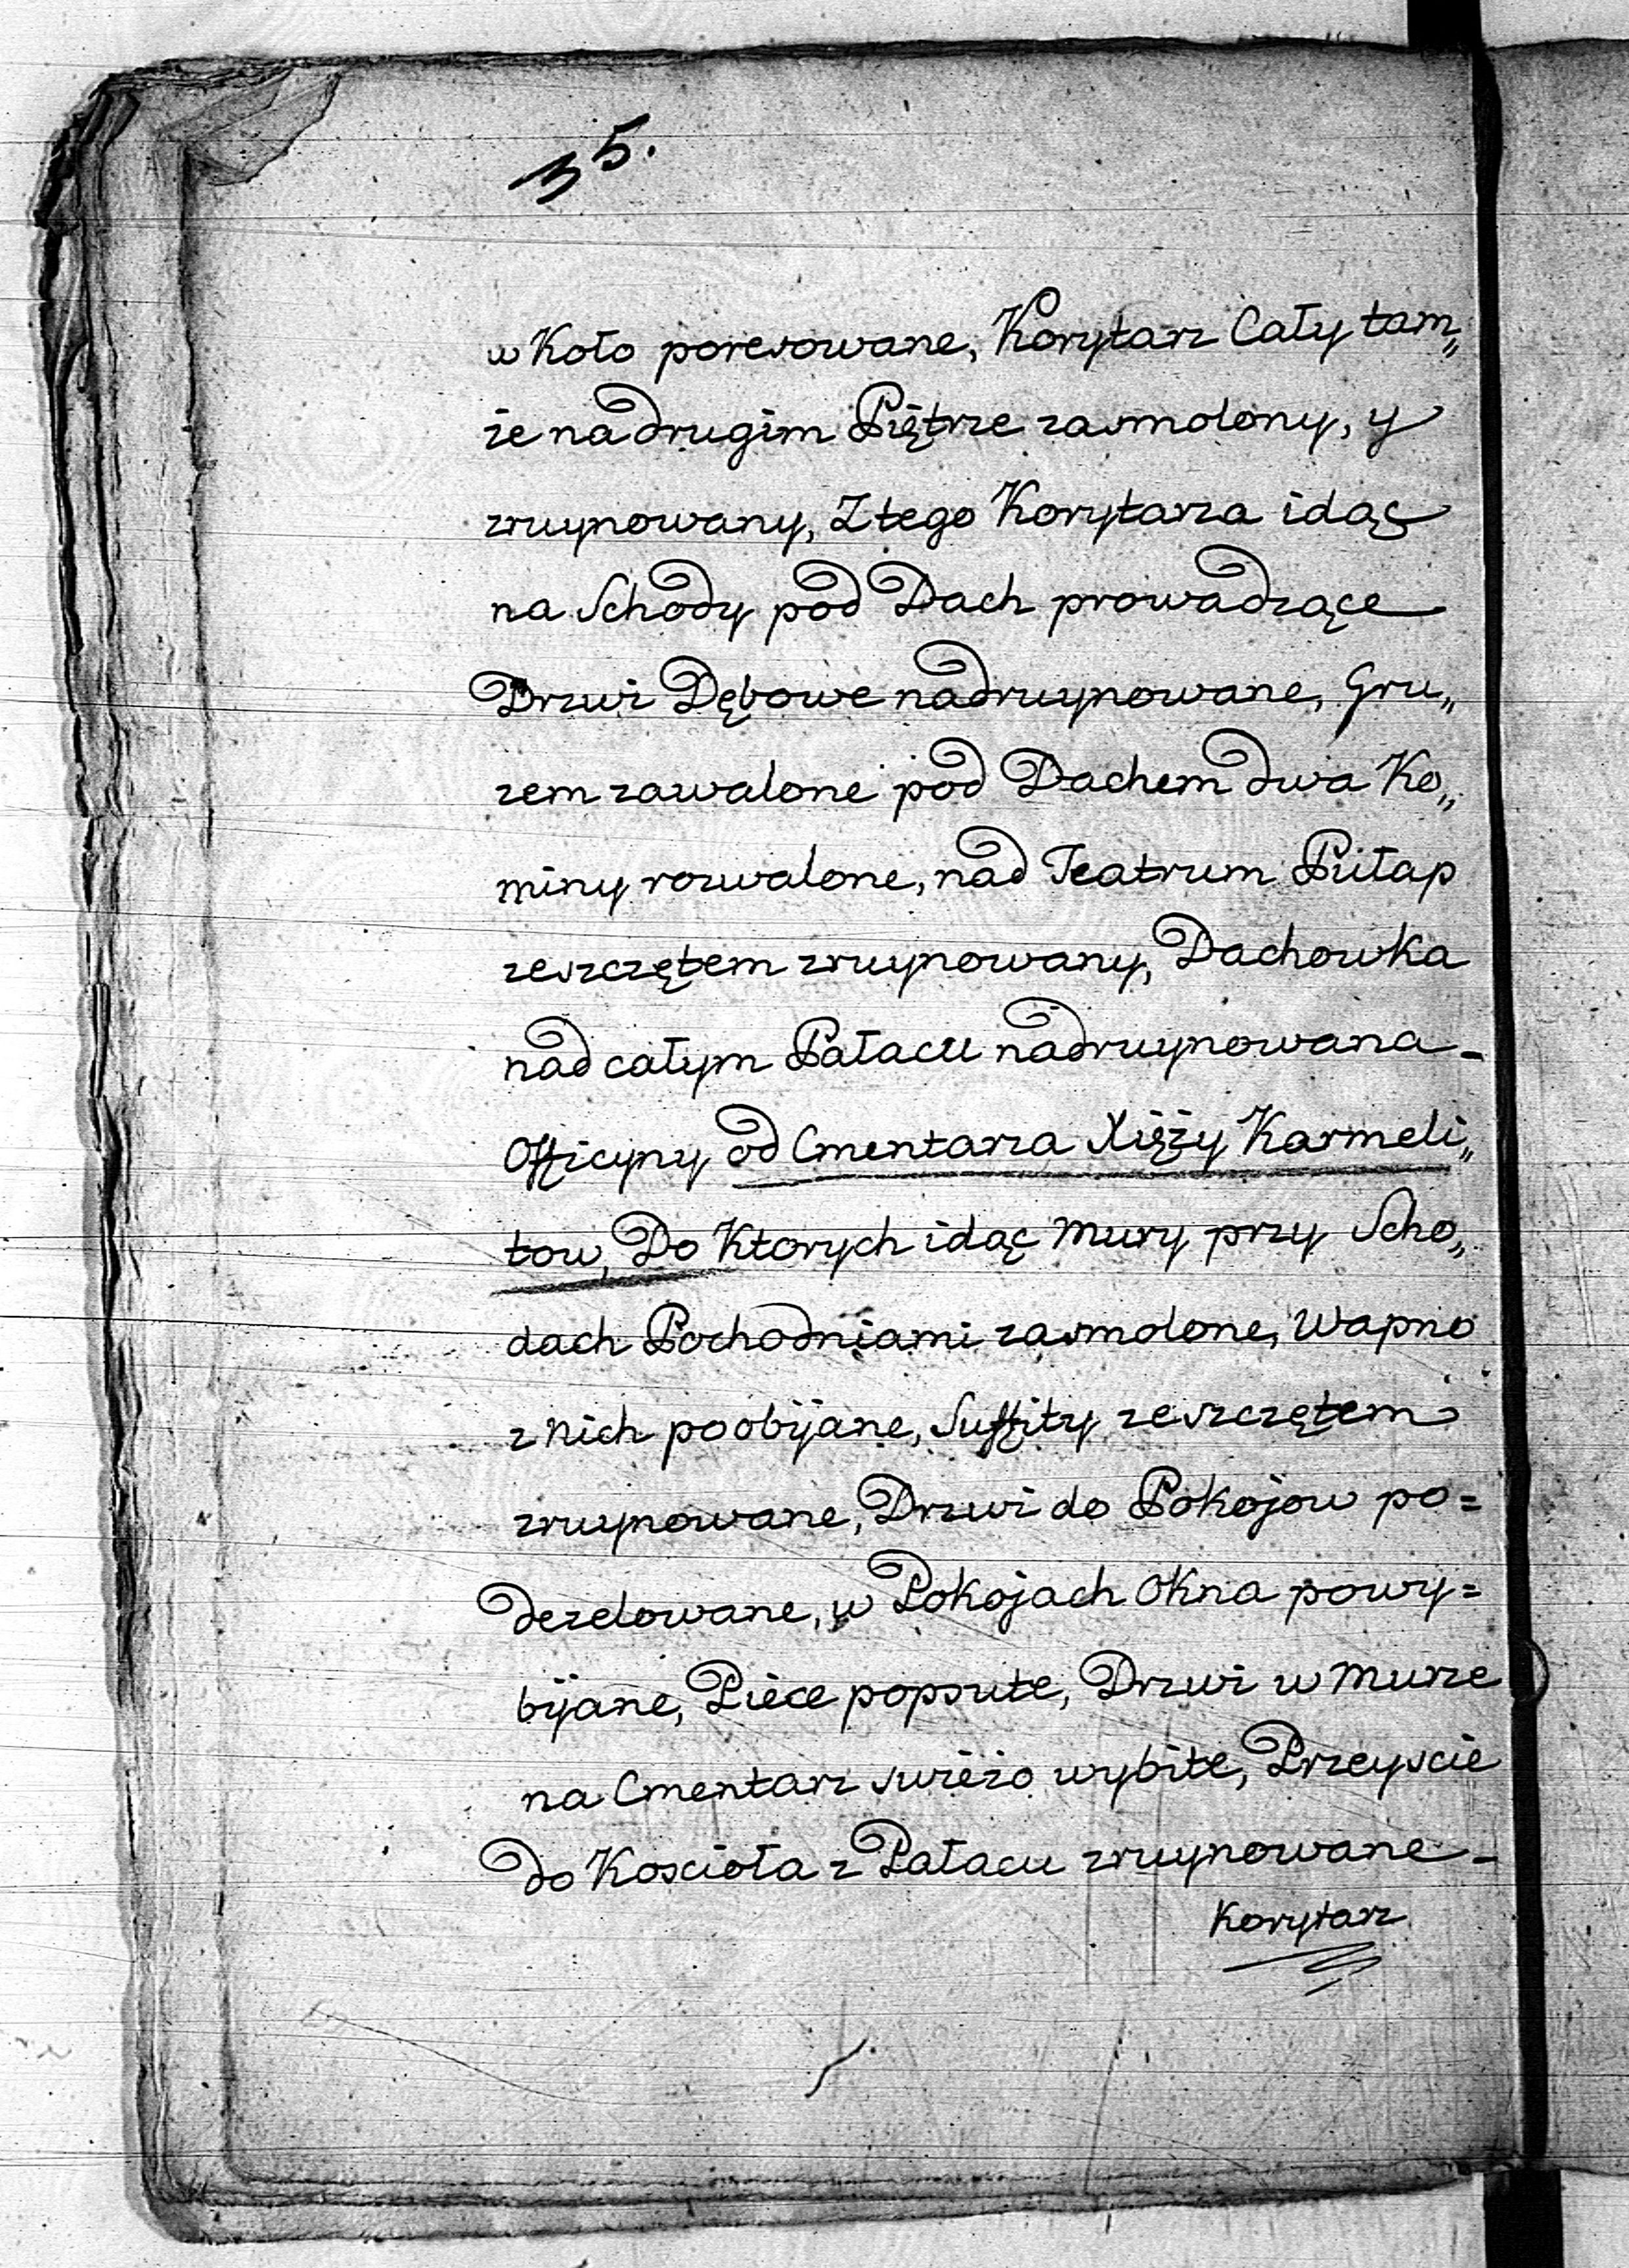 35.
w Koło poresowane, Korytarz Cały tam„
że na drugim Piętrze zasmolony, y
zruynowany, Z tego Korytarza idąc
na Schody pod Dach prowadzące
Drzwi Dębowe nadruynowane, Gru„
zem zawalone pod Dachem dwa Ko„
miny rozwalone, nad Teatrum Pułap
zeszczętem zruynowany, Dachowka
nad całym Pałacu nadruynowana -
Officyny od Cmentarza Xięży Karmeli„
tow, Do Ktorych idąc Mury przy Scho„
dach Pochodniami zasmolone, Wapno
z nich poobijane, Suffity zeszczętem
zruynowane, Drzwi do Pokojow po=
dezelowane, w Pokojach Okna powy=
bijane, Piece popsute, Drzwi w Murze
na Cmentarz swieżo wybite, Przeyscie
do Koscioła z Pałacu zruynowane -
Korytarz